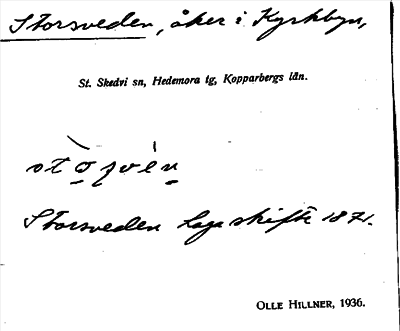 Storsveden, åker i Kyrkbyn,
St. Skedvi sn, Hedemora tg, Kopparbergs län.
Storsveden Laga skifte 1871.
OLLE HILLNER, 1936.